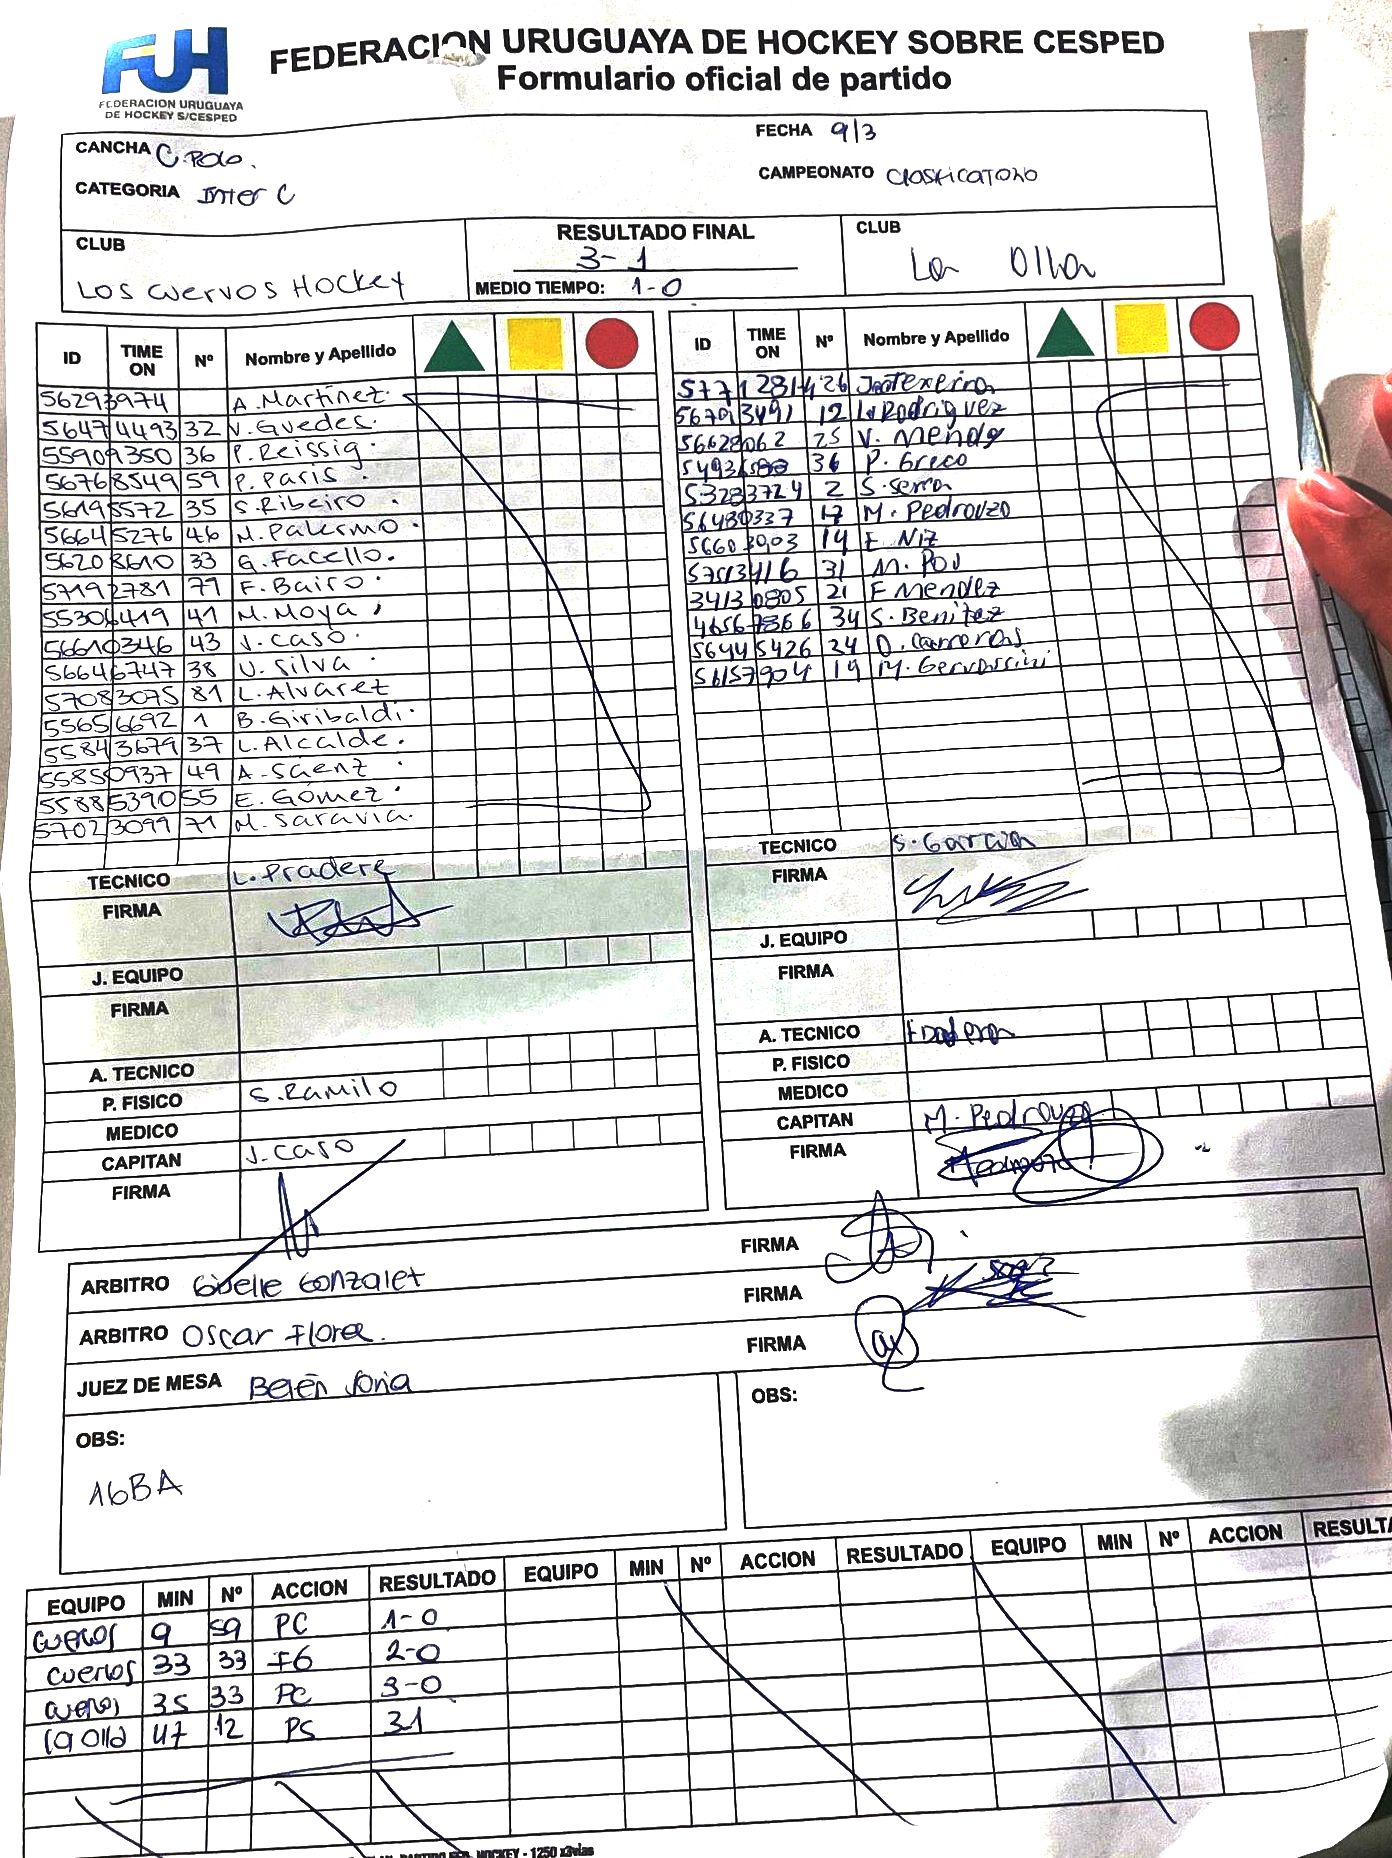 FUH
FEDERACION URUGUAYA
DE HOCKEY S/CESPED
FEDERACION URUGUAYA DE HOCKEY SOBRE CESPED
Formulario oficial de partido
CANCHA C. Polo.
FECHA 9/3
CATEGORIA Inter C
CAMPEONATO Clasificatorio
CLUB
Los Cuervos Hockey
RESULTADO FINAL
3-1
MEDIO TIEMPO: 1-0
CLUB
La Olla
ID TIME ON Nº Nombre y Apellido
56293974 A. Martínez.
56474493 32 V. Guedes.
55909350 36 P. Reissig.
56768549 59 P. Paris.
56195572 35 S. Ribeiro.
56645276 46 M. Palermo.
56208610 33 G. Facello.
57192781 77 F. Bairo.
55306419 41 M. Moya,
56610346 43 J. Caso.
56646747 38 U. Silva
57083075 81 L. Alvarez
55656692 1 B. Giribaldi.
55843679 37 L. Alcalde.
55850937 49 A. Sáenz
55885390 55 E. Gómez.
57023099 71 M. Saravia.
TECNICO L. Pradere
FIRMA
J. EQUIPO
FIRMA
A. TECNICO
P. FISICO S. Ramilo
MEDICO
CAPITAN J. Caso
FIRMA
ID TIME ON Nº Nombre y Apellido
57712814 26 Texeira
56793491 12 Rodriguez
56628062 25 V. Mendez
36 P. Greco
53283724 2 S. Serra
56480337 17 M. Pedrouzo
56603003 14 E. Niz
57513416 31 M. Pou
34130805 21 F Mendez
46567366 34 S. Benitez
56445426 24 D. Carreras
56157904 19 M. Gervassini
TECNICO S. Garcia
FIRMA
J. EQUIPO
FIRMA
A. TECNICO
P. FISICO
MEDICO
CAPITAN M. Pedrouzo
FIRMA
ARBITRO Giselle Gonzalez
FIRMA
ARBITRO Oscar Flores.
FIRMA
JUEZ DE MESA Belén Soria
FIRMA
OBS:
16BA
OBS:
EQUIPO MIN Nº ACCION RESULTADO EQUIPO MIN Nº ACCION RESULTADO EQUIPO MIN Nº ACCION RESULTA
Cuervos 9 59 PC 1-0
Cuervos 33 33 FG 2-0
Cuervos 35 33 PC 3-0
La Olla 47 12 PS 31
HOCKEY - 1250 x3vias